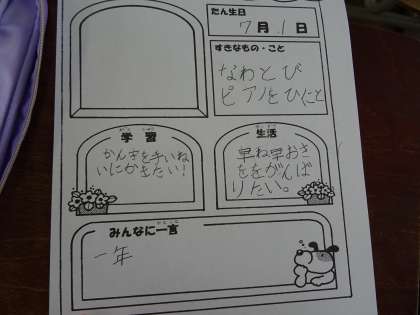 たん生日
7月1日
すきなもの・こと
なわとび
ピアノをひにと
がくしゅう
学習
かん字を手いね
いにかきたい!
せいかつ
生活
早ね早おき
ををがんば
りたい。
みんなに一言
一年